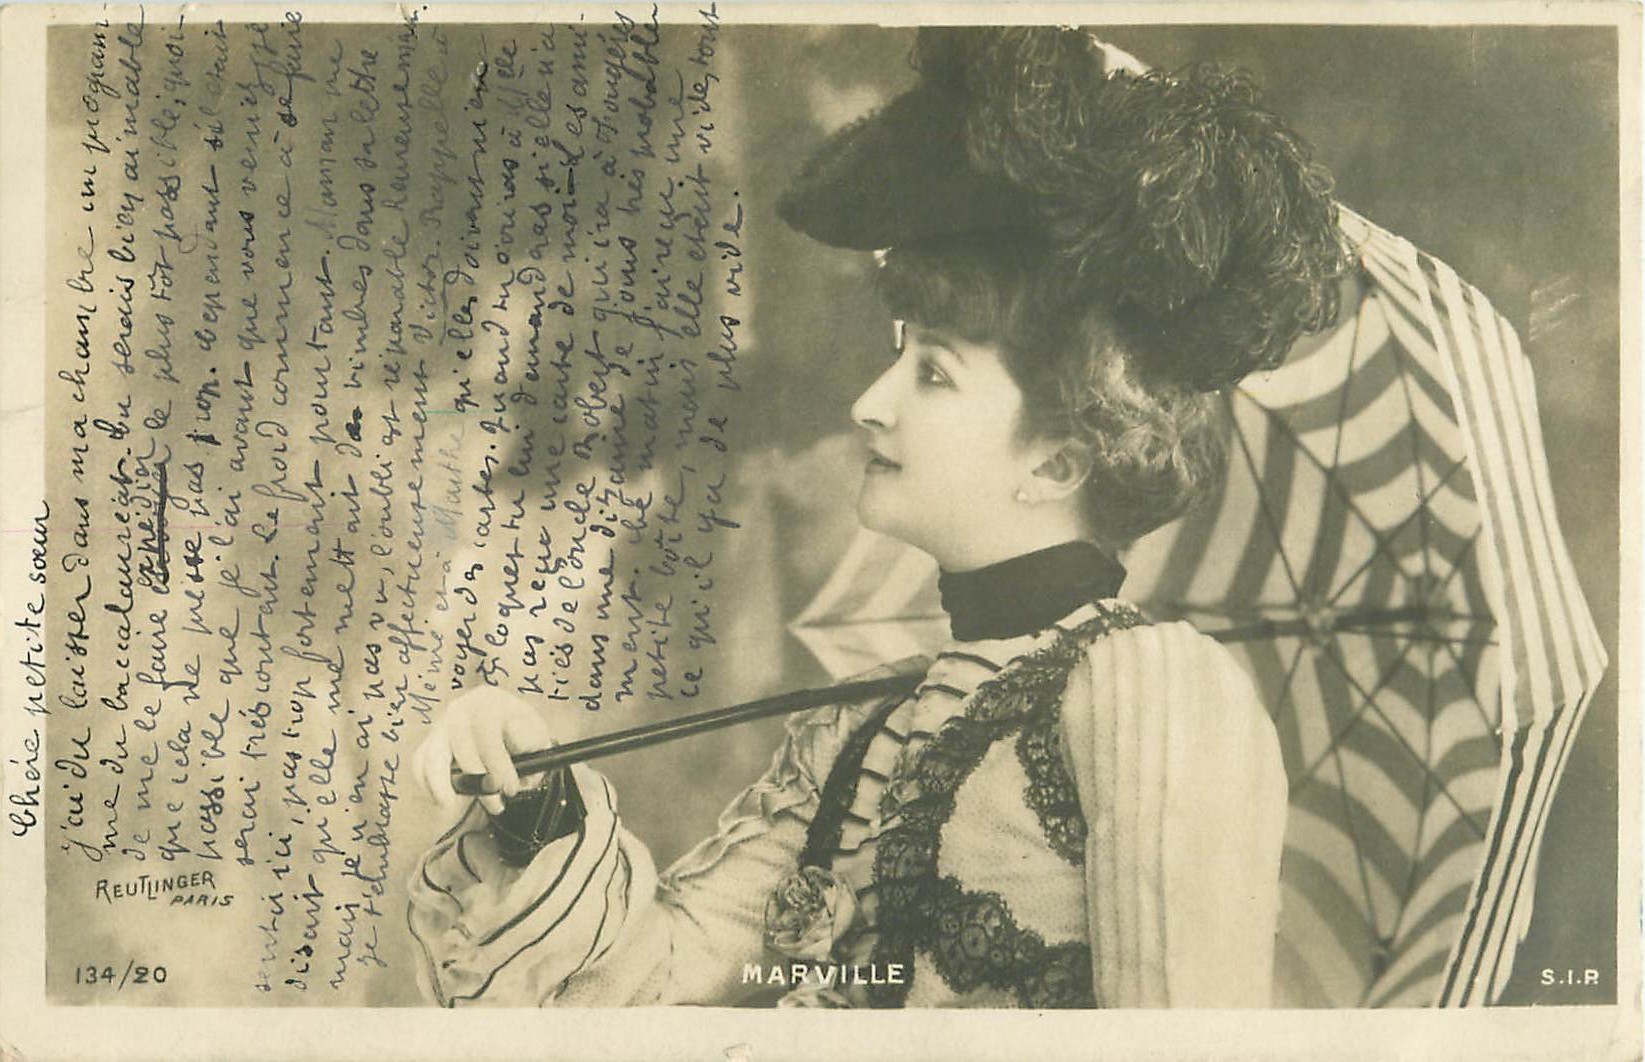 Chére petite sœur
j'ai du laisser dans ma chambre un program-
me du baccalauréat. Tu serais bien aimable
de me le faire expédier le plus tôt possible, quoi-
que cela ne presse pas trop. cependant s'il était
possible que je l'ai avant que vous veniez je
serai très content. Le froid commence à se faire
sentir ici, pas trop fortement pourtant. Maman me
disait qu'elle me mettait des timbres dans sa lettre
mais je n'en ai pas vu, l'oubli est réparable heureusement.
Je t'embrasse bien affectueusement Victor. Rappelle à
Mémé et à Marthe qu'elles doivent m'en
voyer des cartes. Quand tu écriras à
loquet tu lui demanderas si elle n'a
pas reçu une carte de moi - les ami-
tiés de l'oncle Robert qui ira à Fougères
dans une dizaine de jours très probable
ment. Ce matin j'ai reçu une
petite boîte, mais elle était vide, tout
ce qu'il y a de plus vide.
REUTLINGER
PARIS
134/20
MARVILLE
S.I.P.